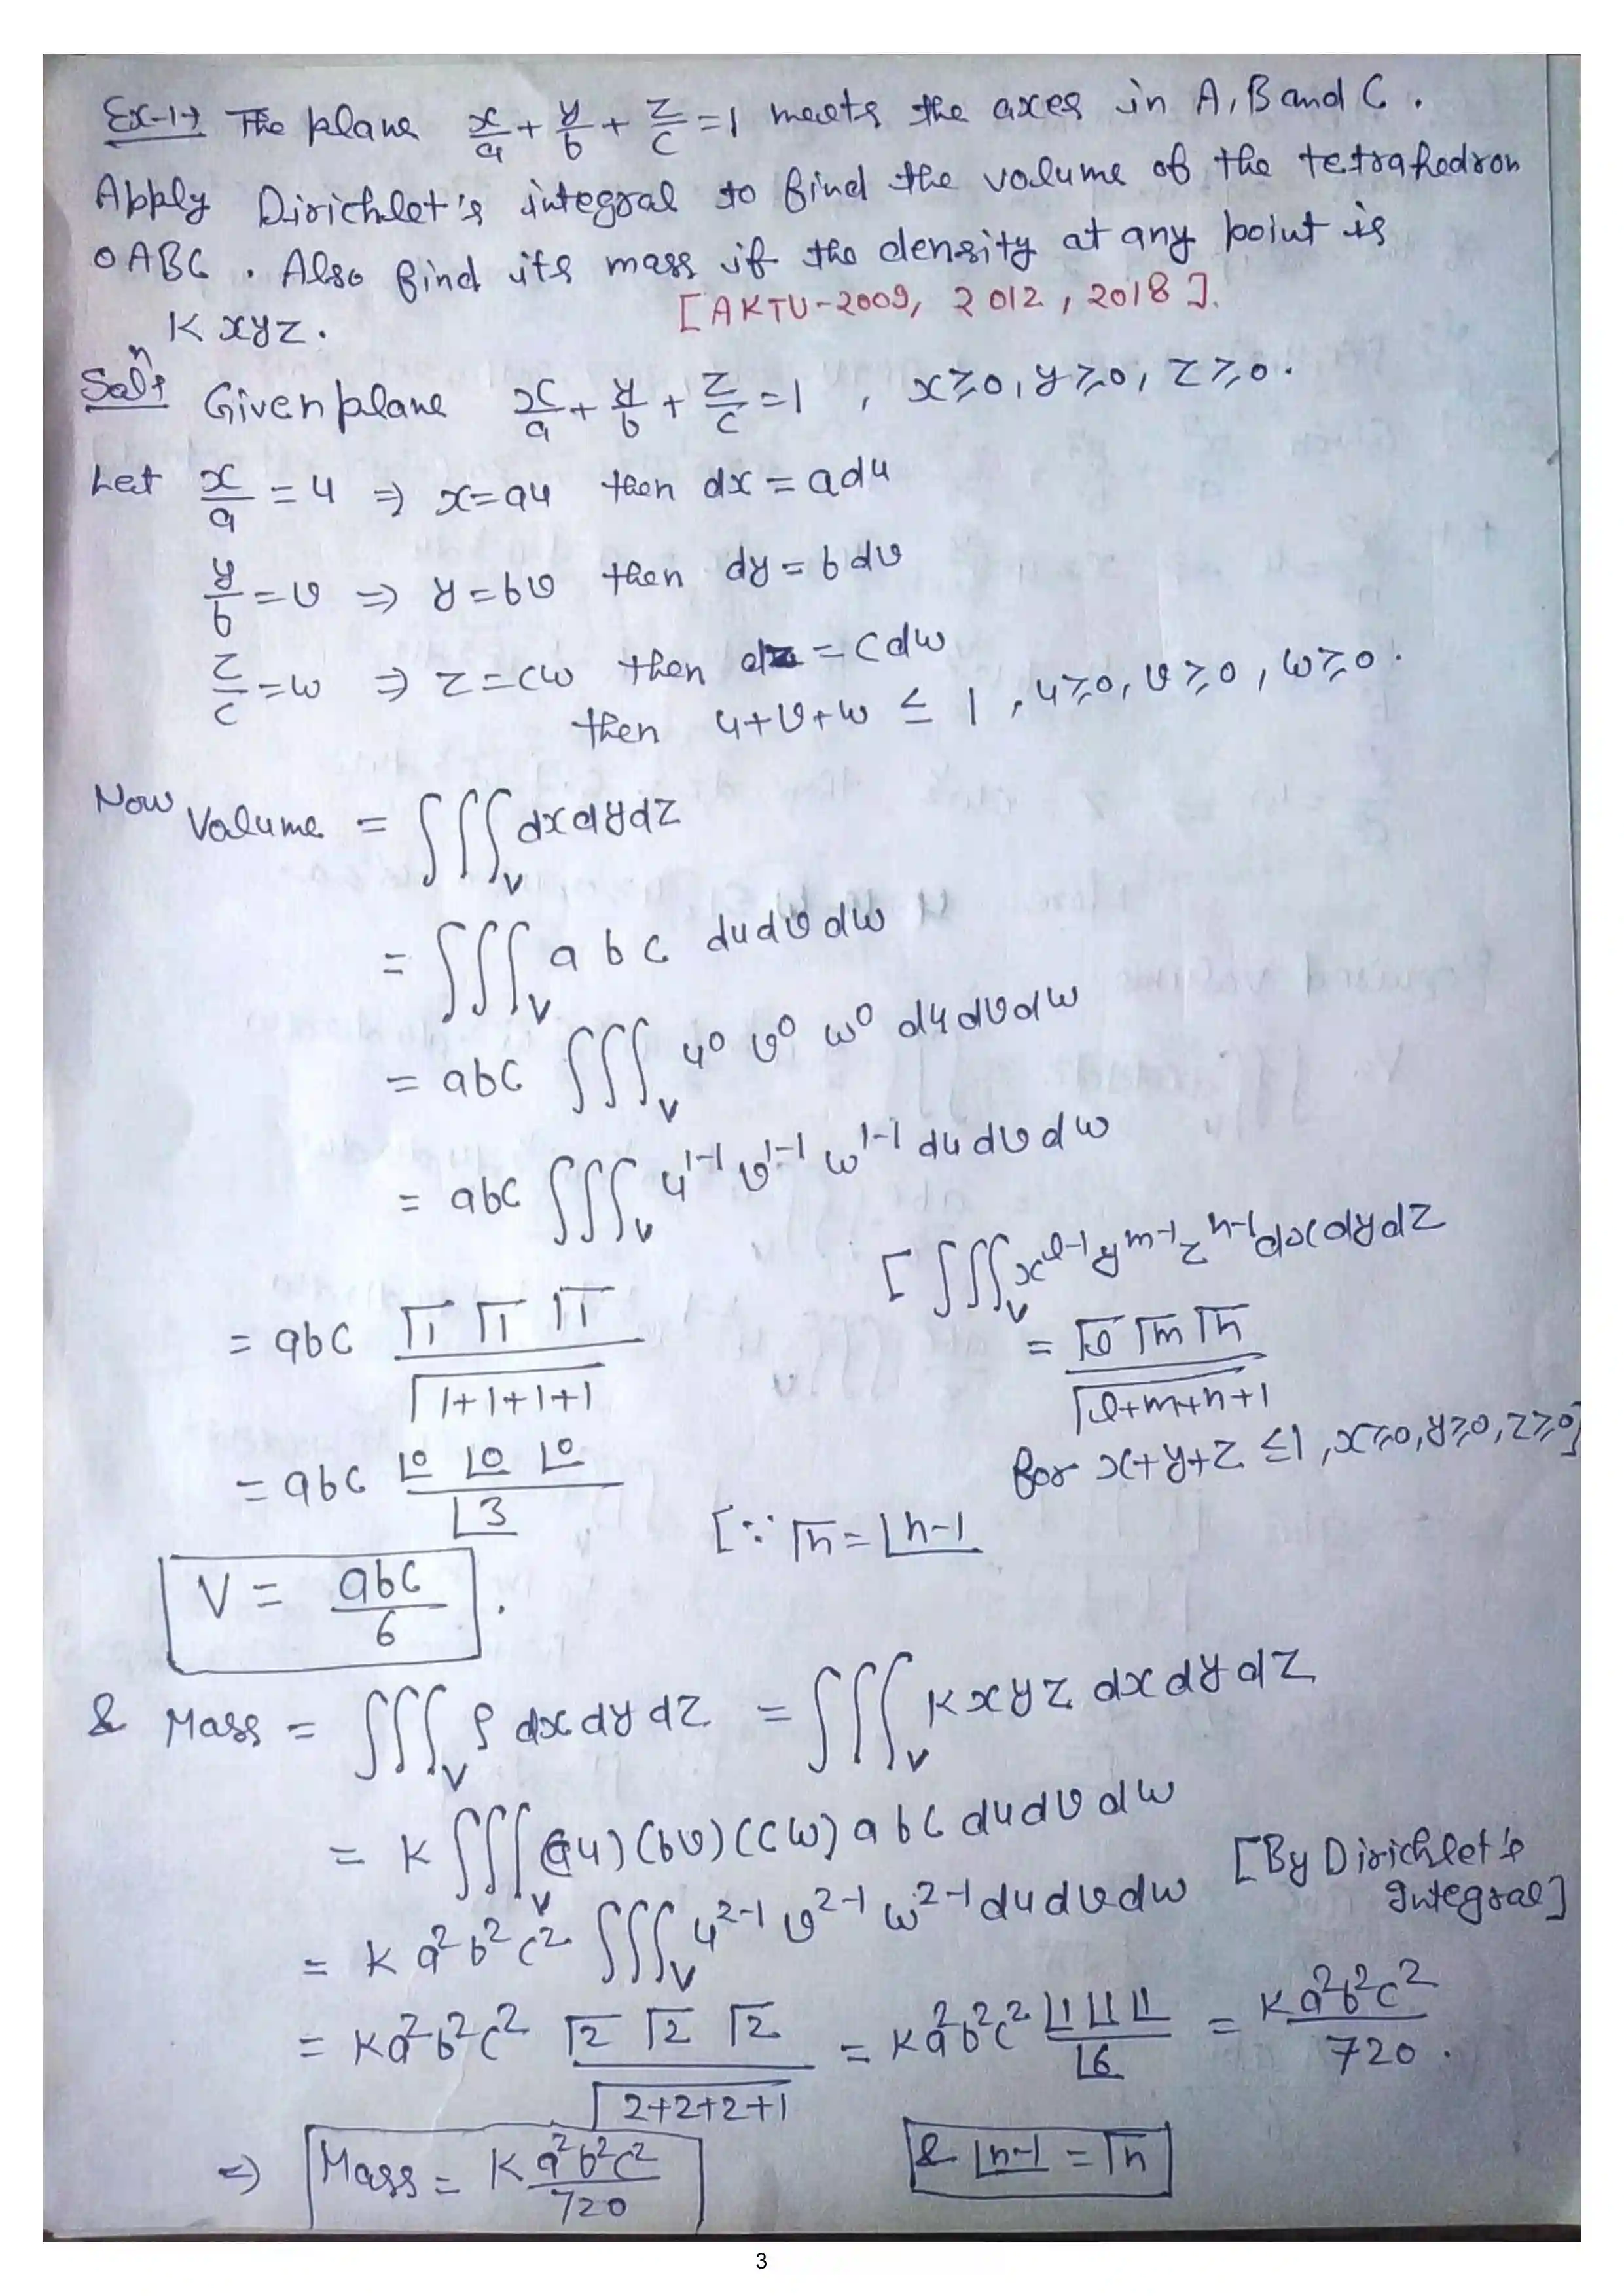 Ex-1→ The plane x/a + y/b + z/c = 1 meets the axes in A, B and C.
Apply Dirichlet's integral to find the volume of the tetrahedron
OABC. Also find its mass if the density at any point is
Kxyz.
[AKTU-2009, 2012, 2018].
Solⁿ: Given plane x/a + y/b + z/c = 1, x≥0, y≥0, z≥0.
Let x/a = u ⇒ x=au then dx = adu
y/b = v ⇒ y=bv then dy = bdv
z/c = w ⇒ z=cw then dz = cdw
then u+v+w ≤ 1, u≥0, v≥0, w≥0.
Now Volume = ∭_V dxdydz
= ∭_V abc dudvdw
= abc ∭_V u⁰ v⁰ w⁰ dudvdw
= abc ∭_V u^(1-1) v^(1-1) w^(1-1) dudvdw
[∭_V x^(l-1) y^(m-1) z^(n-1) dxdydz
= abc Γ1 Γ1 Γ1 / Γ(1+1+1+1)
= Γl Γm Γn / Γ(l+m+n+1)
for x+y+z ≤ 1, x≥0, y≥0, z≥0]
= abc ∟0 ∟0 ∟0 / ∟3
[∵ Γn = ∟n-1
V = abc/6.
& Mass = ∭_V ρ dxdydz = ∭_V Kxyz dxdydz
= K ∭_V (au)(bv)(cw) abc dudvdw
= K a²b²c² ∭_V u^(2-1) v^(2-1) w^(2-1) dudvdw [By Dirichlet's
Integral]
= Ka²b²c² Γ2 Γ2 Γ2 / Γ(2+2+2+1) = Ka²b²c² ∟1 ∟1 ∟1 / ∟6 = Ka²b²c²/720.
⇒ Mass = K a²b²c²/720
& ∟n-1 = Γn
3